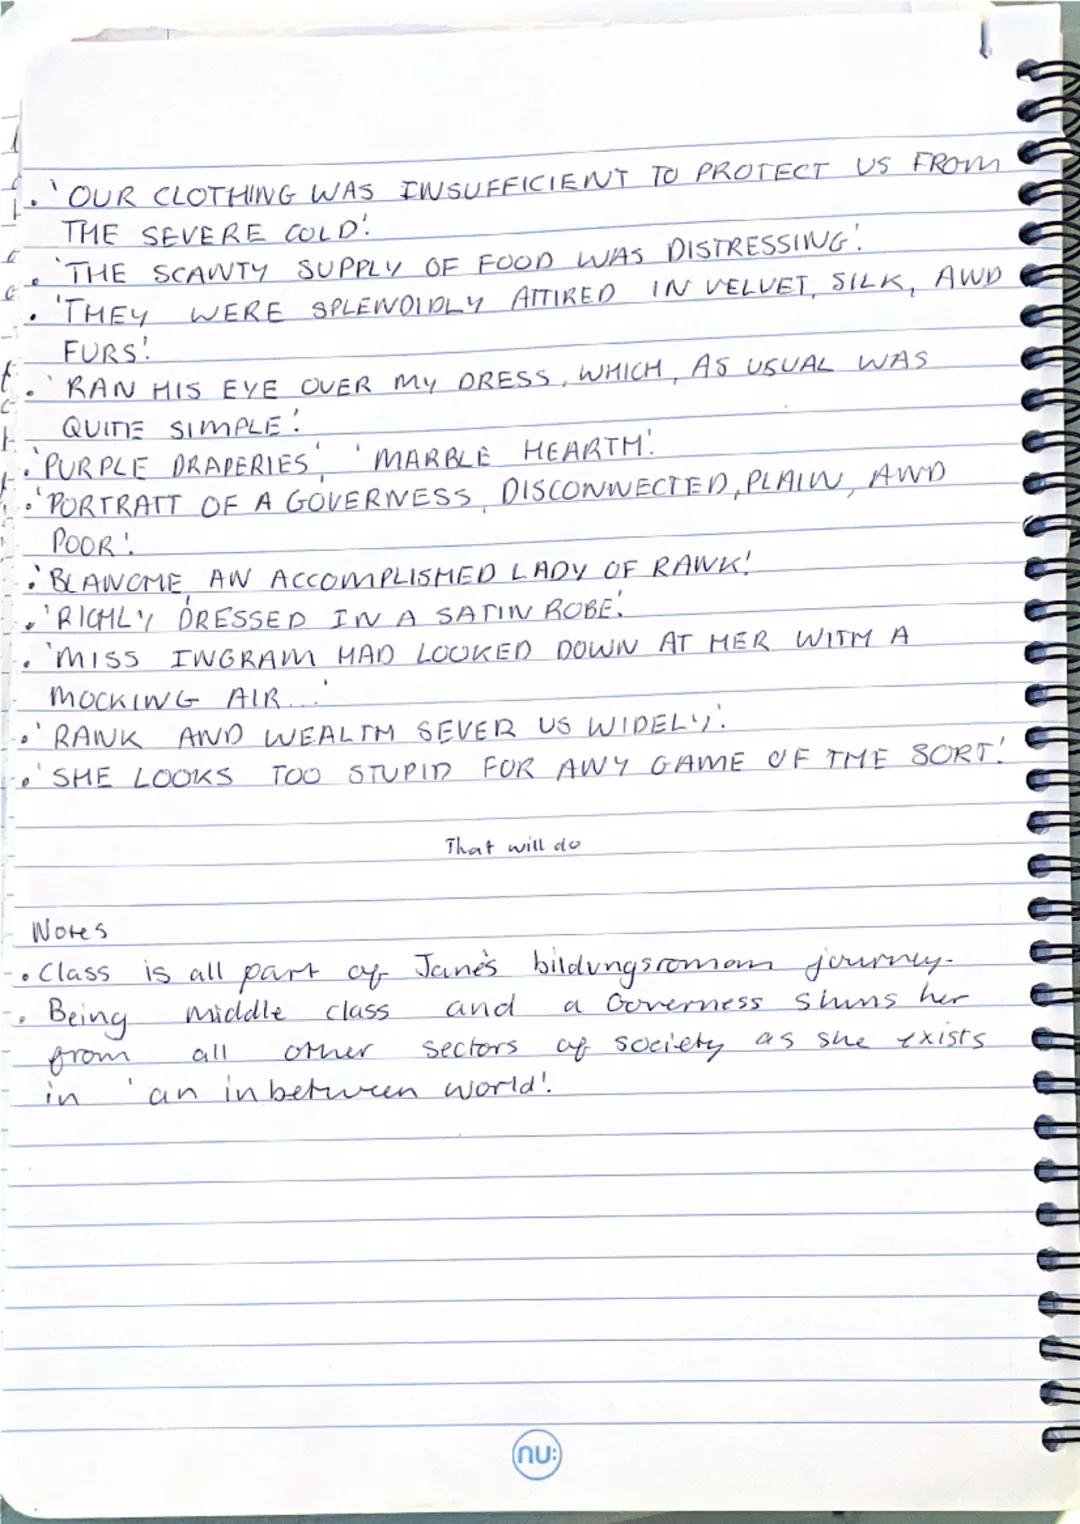 • 'OUR CLOTHING WAS INSUFFICIENT TO PROTECT US FROM
THE SEVERE COLD'.
• 'THE SCANTY SUPPLY OF FOOD WAS DISTRESSING'.
• 'THEY WERE SPLENDIDLY ATTIRED IN VELVET, SILK, AND
FURS'.
• 'RAN HIS EYE OVER MY DRESS, WHICH, AS USUAL WAS
QUITE SIMPLE'.
• 'PURPLE DRAPERIES', 'MARBLE HEARTH'.
• 'PORTRATT OF A GOVERNESS, DISCONNECTED, PLAIN, AND
POOR'.
• 'BLANCHE, AN ACCOMPLISHED LADY OF RANK'.
• 'RICHLY DRESSED IN A SATIN ROBE'.
• 'MISS INGRAM HAD LOOKED DOWN AT HER WITH A
MOCKING AIR...'
• 'RANK AND WEALTH SEVER US WIDELY'.
• 'SHE LOOKS TOO STUPID FOR ANY GAME OF THE SORT'.
That will do
Notes
• Class is all part of Jane's bildungsroman journey.
• Being middle class and a Governess shuns her
from all other sectors of society as she exists
in 'an inbetween world'.
nu: